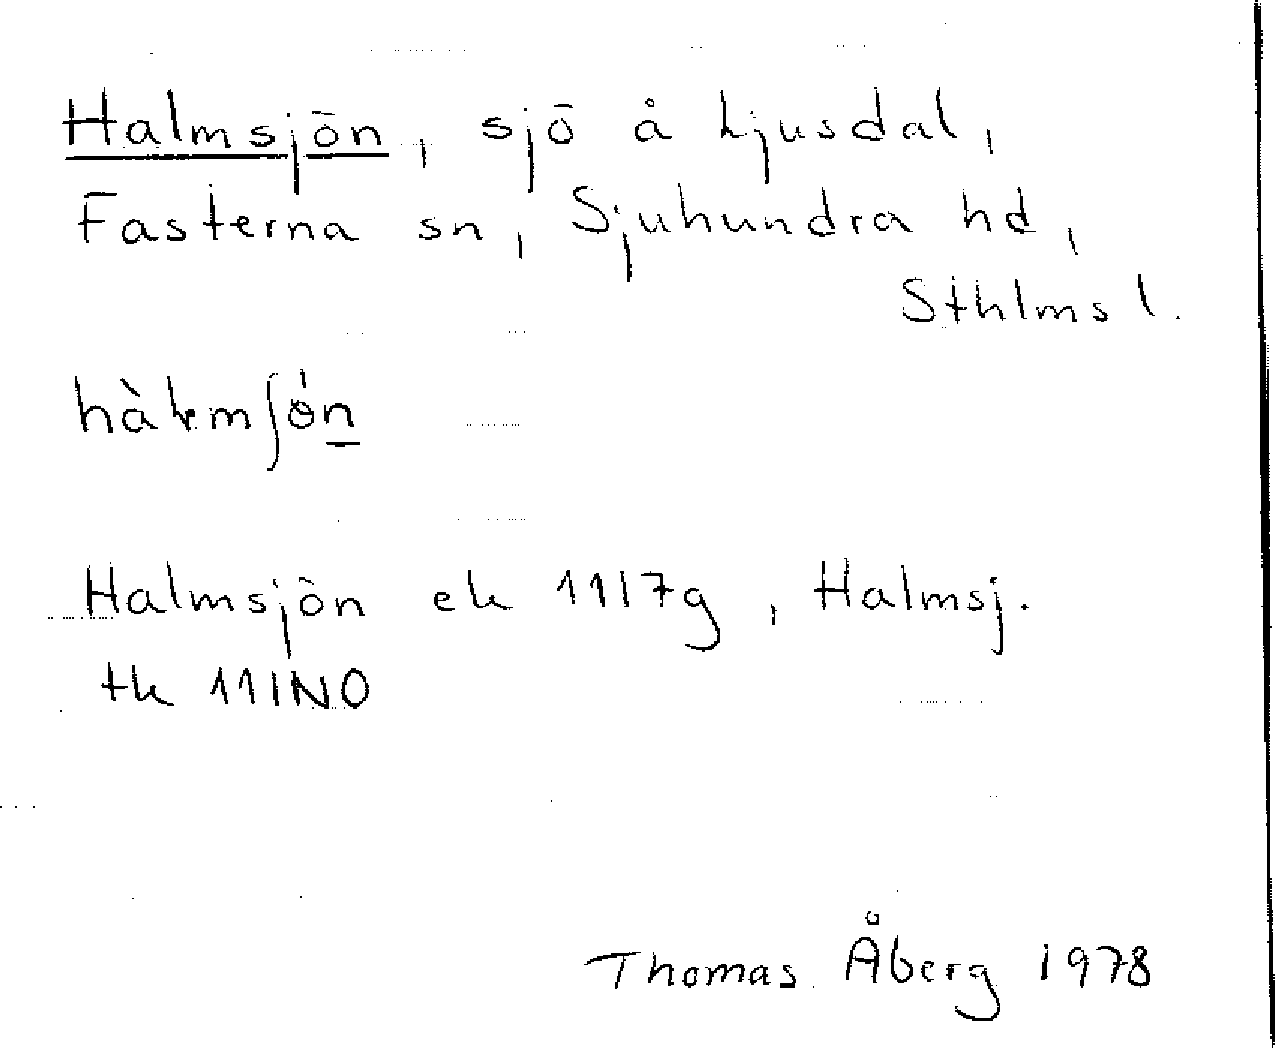 Halmsjön, sjö å Ljusdal,
Fasterna sn, Sjuhundra hd,
Sthlms l.
Halmsjön ek 11I7g, Halmsj.
tk 11INO
Thomas Åberg 1978